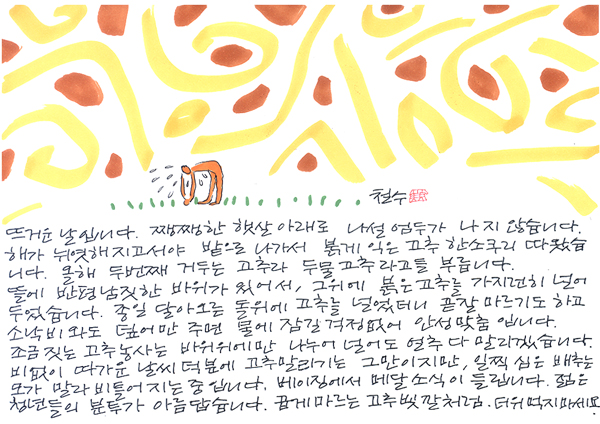 철수
뜨거운 날입니다. 쨍쨍한 햇살 아래로 나설 엄두가 나지 않습니다.
해가 뉘엿해지고서야 밭으로 나가서 붉게 익은 고추 한소쿠리 따왔습
니다. 올해 두번째 거두는 고추라 두물고추라고들 부릅니다.
뜰에 반평남짓한 바위가 있어서, 그위에 붉은고추를 가지런히 널어
두었습니다. 종일 달아오른 돌위에 고추를 널었더니 곧잘 마르기도 하고
소낙비와도 덮어만 주면 물에 잠길 걱정없어 안성맞춤입니다.
조금 짓는 고추농사는 바위위에만 나누어 널어도 얼추 다 말리겠습니다.
비없이 따가운 날씨 덕분에 고추말리기는 그만이지만, 일찍 심은 배추는
모가 말라 비틀어지는 중입니다. 베이징에서 메달 소식이 들립니다. 젊은
청년들의 분투가 아름답습니다. 곱게마르는 고추빛깔처럼. 더위먹지마세요